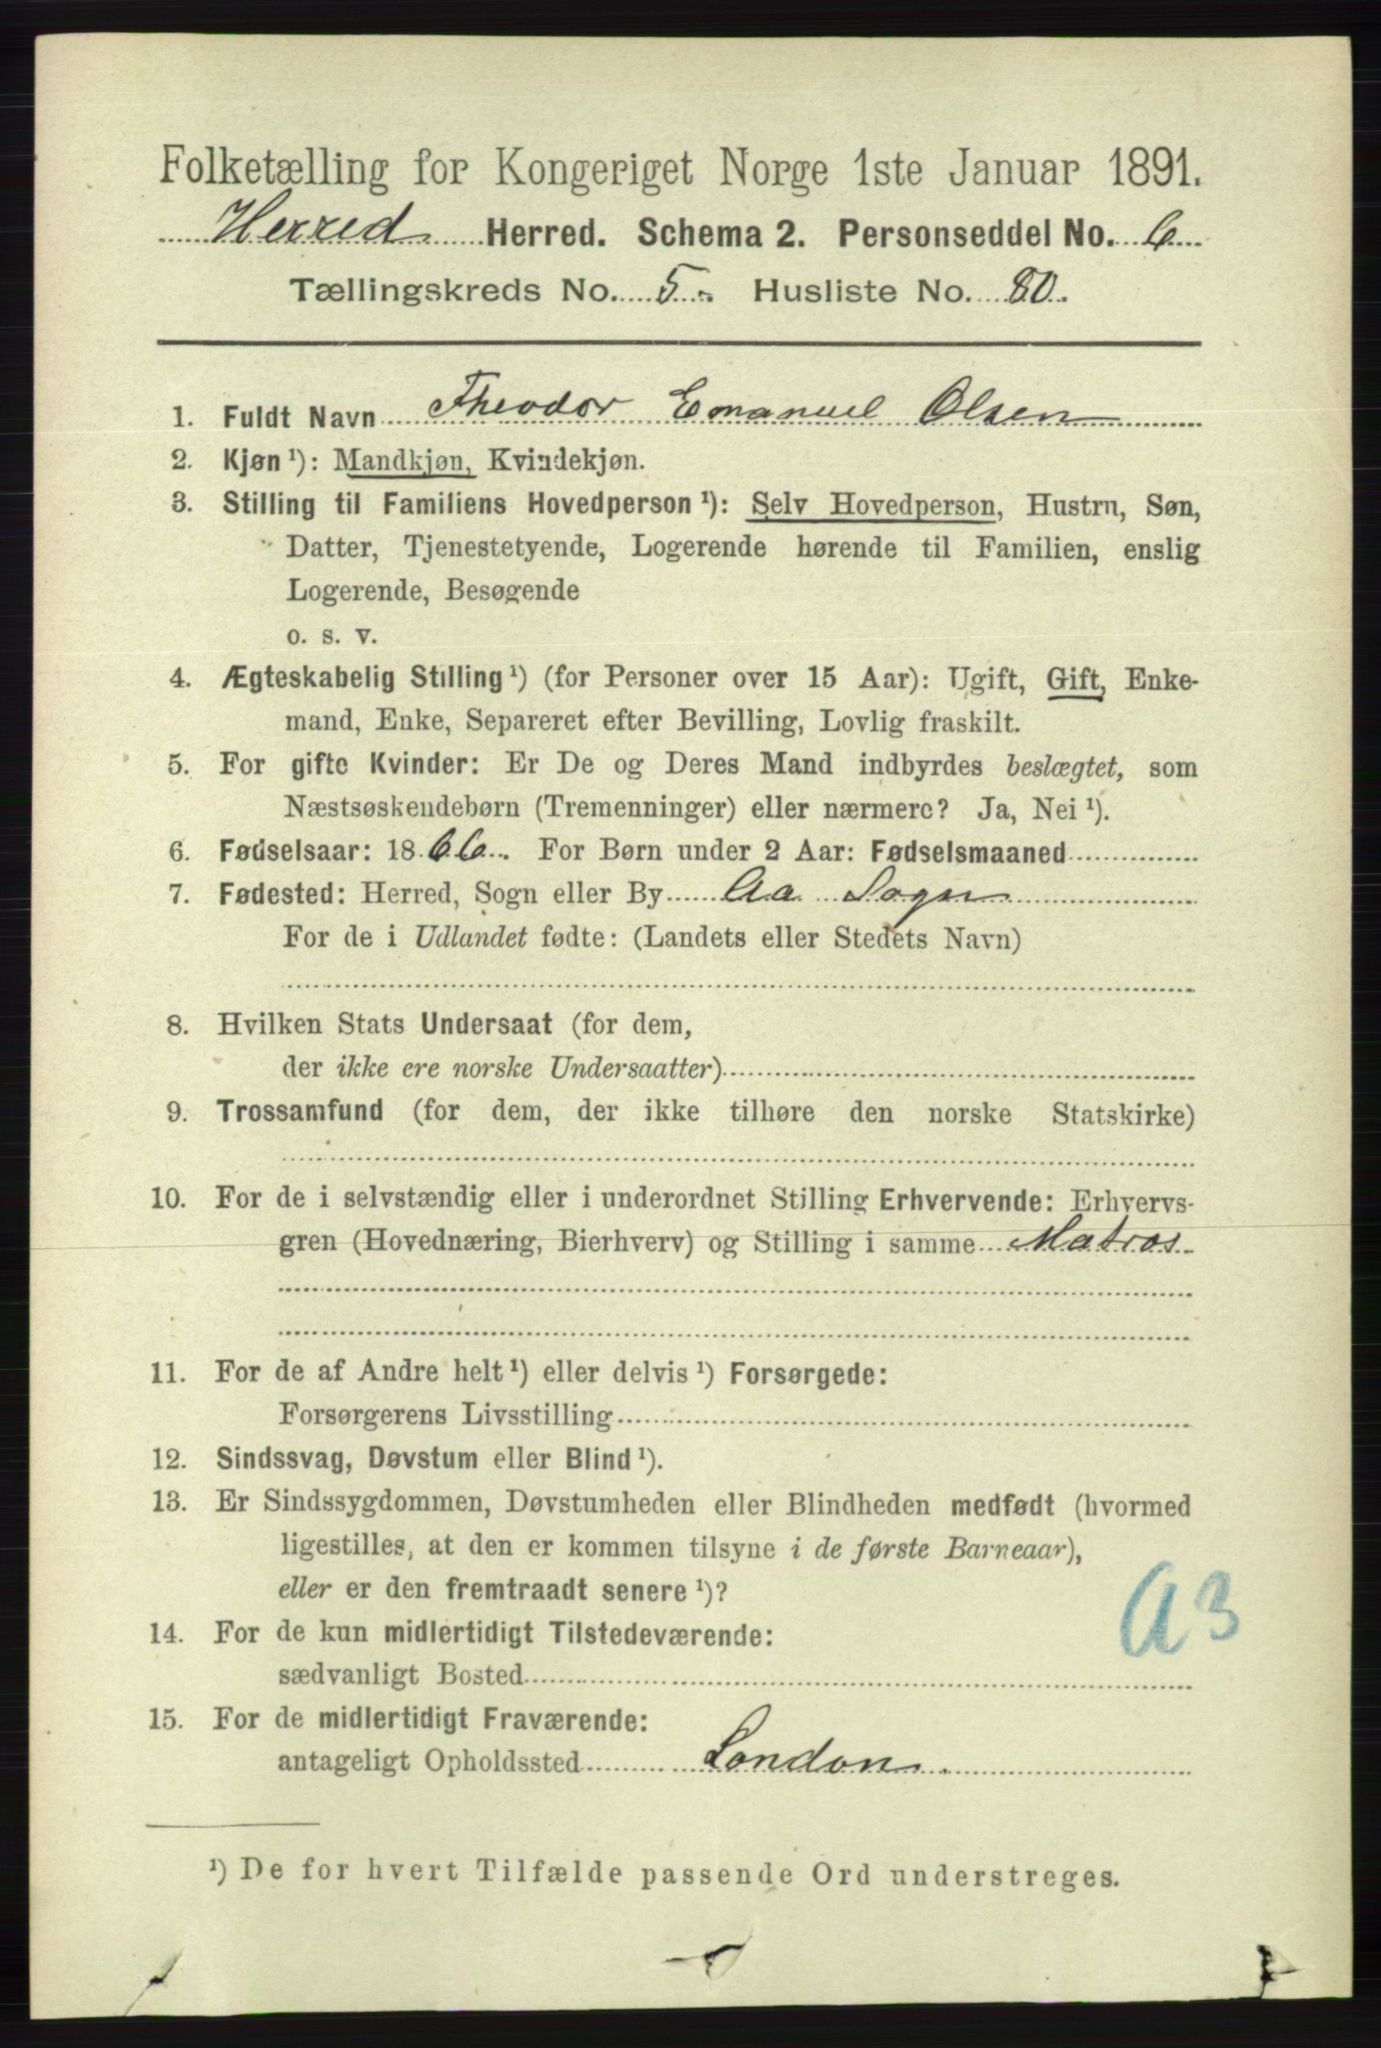 Folketælling for Kongeriget Norge 1ste Januar 1891.
Herred Herred. Schema 2. Personseddel No. 6
Tællingskreds No. 5 Husliste No. 80.
1. Fuldt Navn Theodor Emanuel Olsen
2. Kjøn ¹): Mandkjøn, Kvindekjøn.
3. Stilling til Familiens Hovedperson ¹): Selv Hovedperson, Hustru, Søn,
Datter, Tjenestetyende, Logerende hørende til Familien, enslig
Logerende, Besøgende
o. s. v.
4. Ægteskabelig Stilling ¹) (for Personer over 15 Aar): Ugift, Gift, Enke-
mand, Enke, Separeret efter Bevilling, Lovlig fraskilt.
5. For gifte Kvinder: Er De og Deres Mand indbyrdes beslægtet, som
Næstsøskendebørn (Tremenninger) eller nærmere? Ja, Nei ¹).
6. Fødselsaar: 1866. For Børn under 2 Aar: Fødselsmaaned
7. Fødested: Herred, Sogn eller By Aa Sogn
For de i Udlandet fødte: (Landets eller Stedets Navn)
8. Hvilken Stats Undersaat (for dem,
der ikke ere norske Undersaatter)
9. Trossamfund (for dem, der ikke tilhøre den norske Statskirke)
10. For de i selvstændig eller i underordnet Stilling Erhvervende: Erhvervs-
gren (Hovednæring, Bierhverv) og Stilling i samme Matros
11. For de af Andre helt ¹) eller delvis ¹) Forsørgede:
Forsørgerens Livsstilling
12. Sindssvag, Døvstum eller Blind ¹).
13. Er Sindssygdommen, Døvstumheden eller Blindheden medfødt (hvormed
ligestilles, at den er kommen tilsyne i de første Barneaar),
eller er den fremtraadt senere ¹)?
A3
14. For de kun midlertidigt Tilstedeværende:
sædvanligt Bosted
15. For de midlertidigt Fraværende:
antageligt Opholdssted London
¹) De for hvert Tilfælde passende Ord understreges.